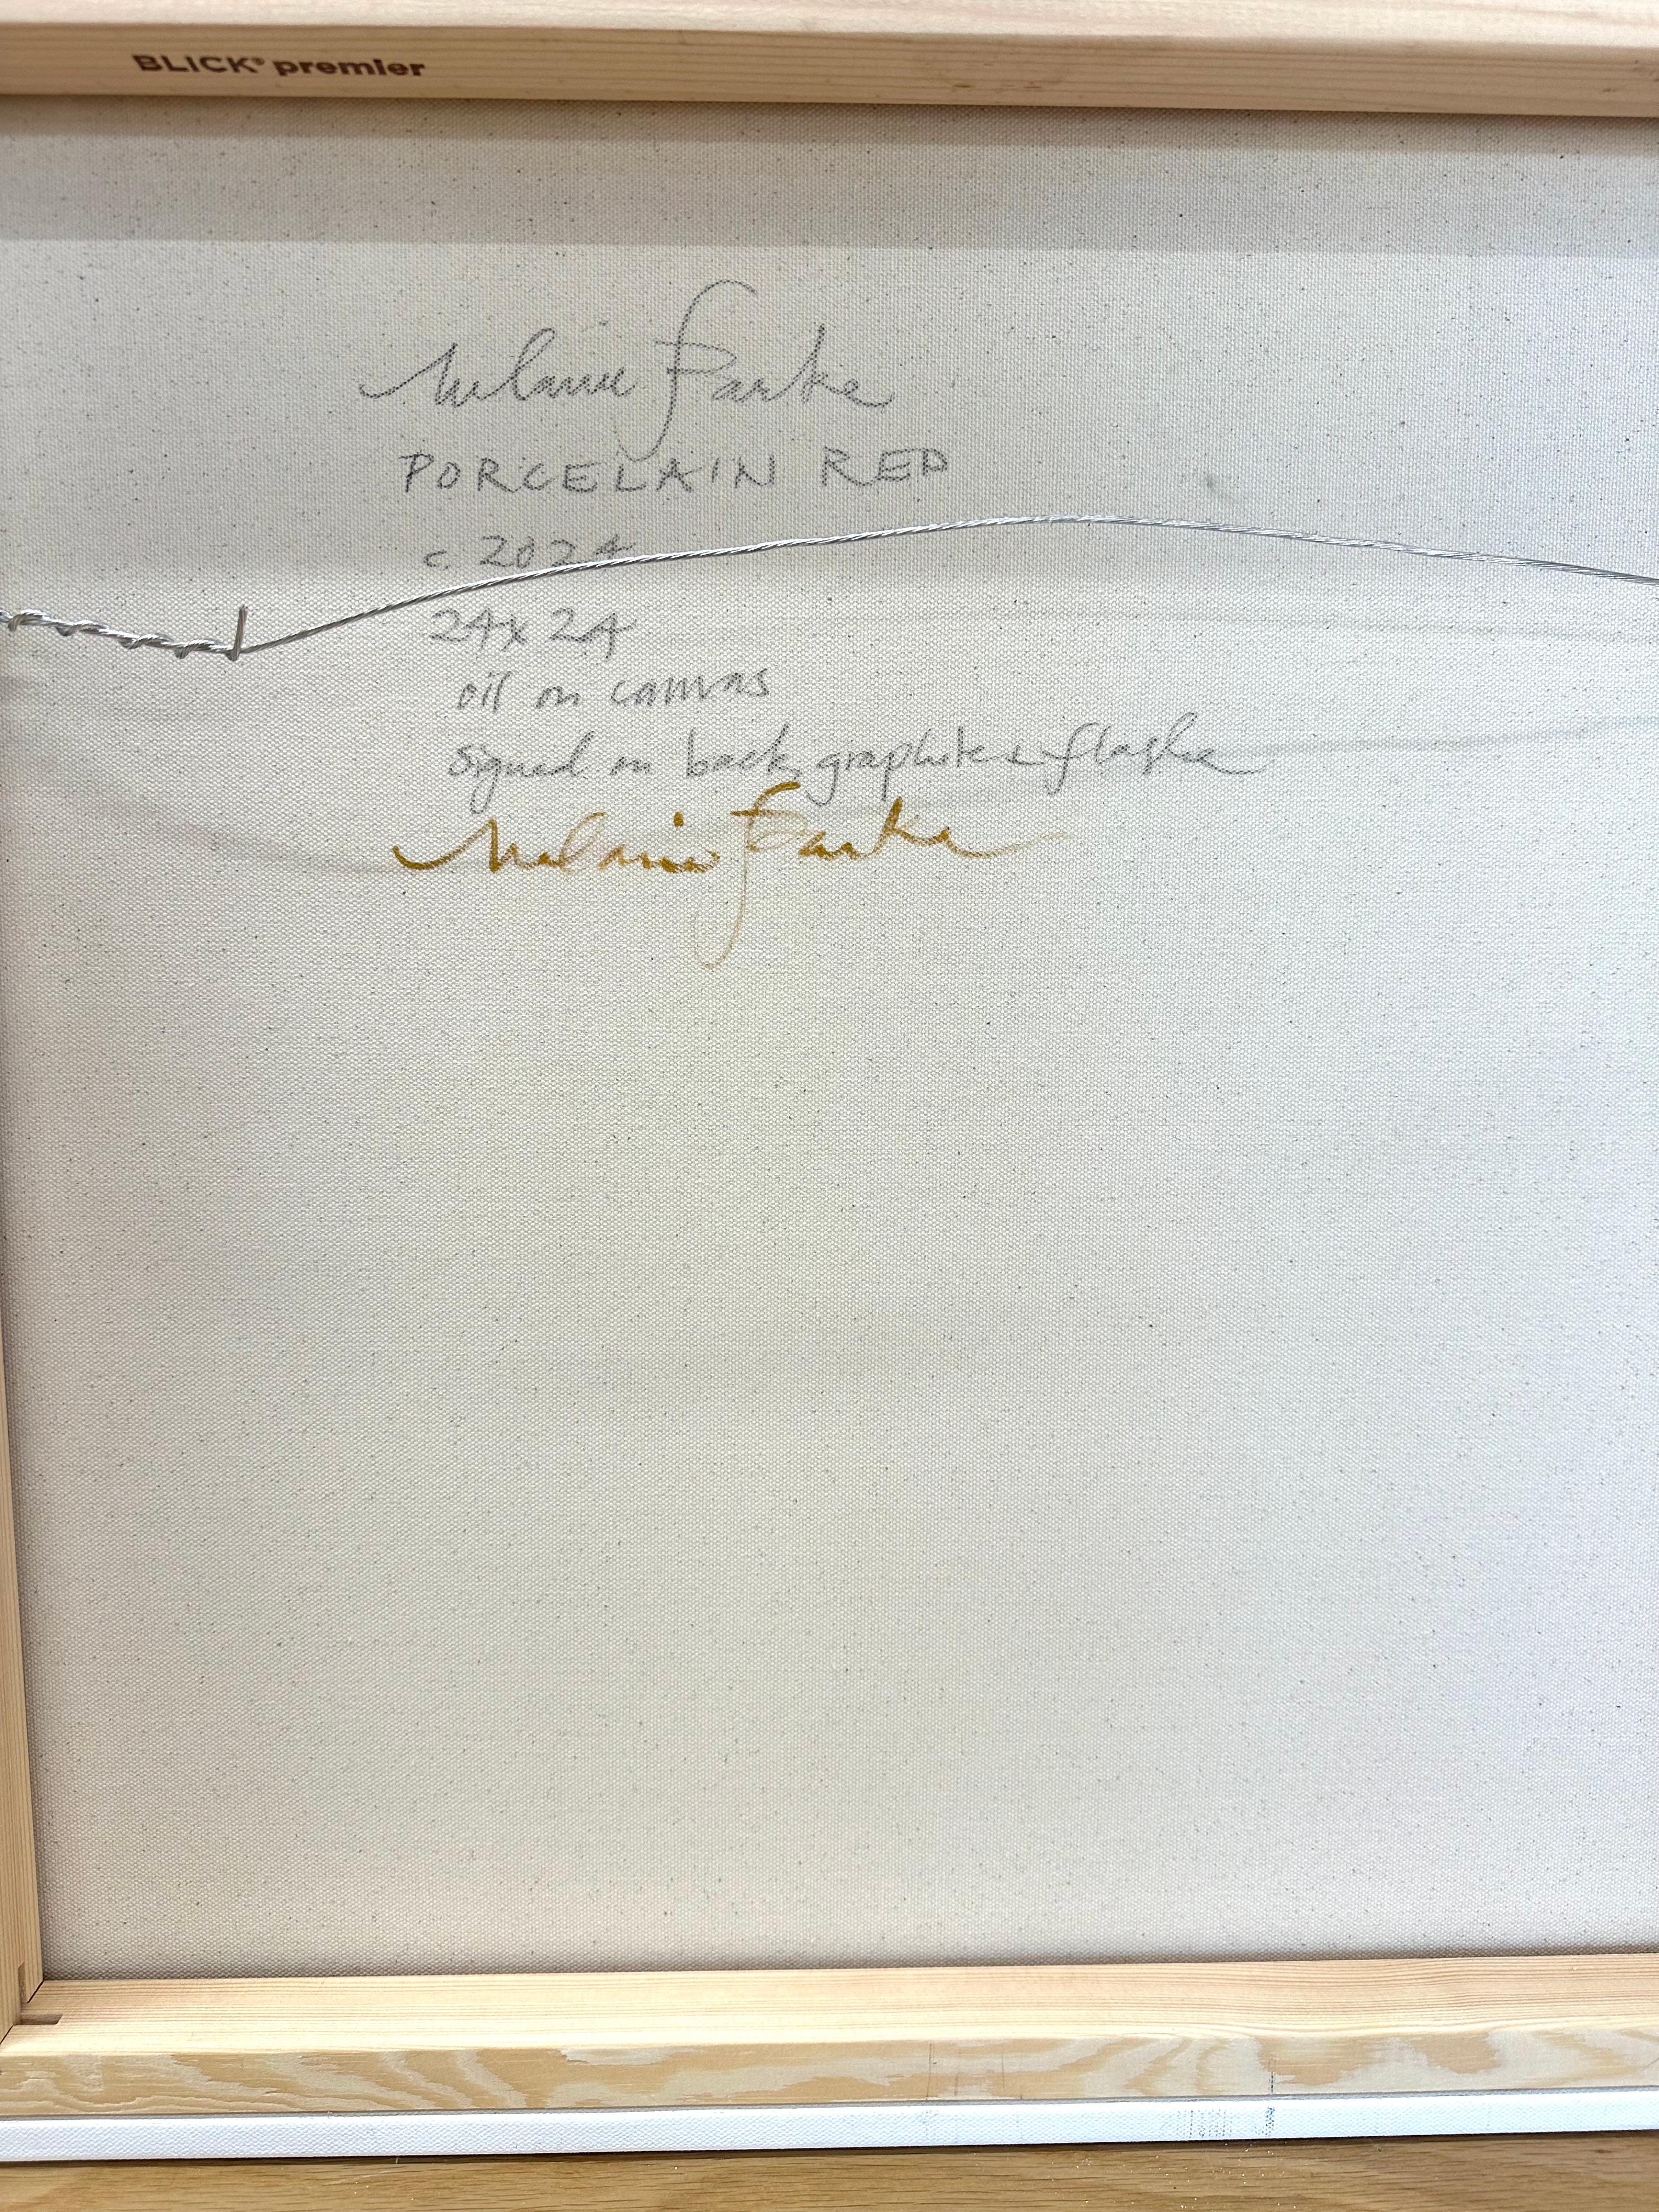 BLICK® premier
Melanie Parke
PORCELAIN RED
c 2024
24x24
oil on canvas
signed on back graphite + flashe
Melanie Parke